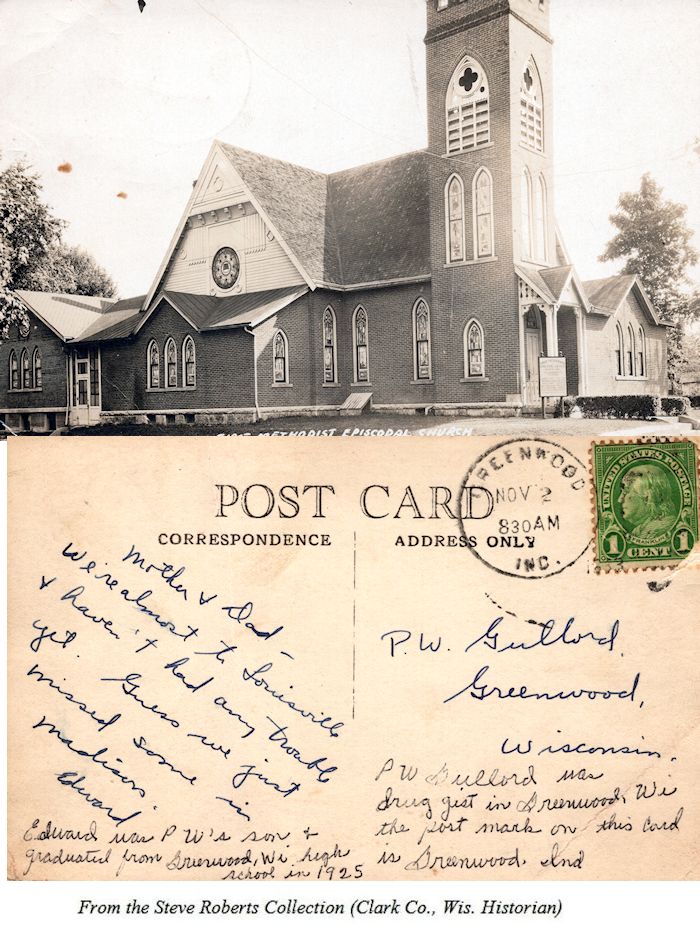 FIRST METHODIST EPISCOPAL CHURCH
POST CARD
CORRESPONDENCE
ADDRESS ONLY
GREENWOOD
NOV 2
830 AM
IND.
UNITED STATES POSTAGE
FRANKLIN
1 CENT 1
Mother & Dad -
We're almost to Louisville
& haven't had any trouble
yet. Guess we just
missed some in
Madison.
Edward
P.W. Gullord,
Greenwood,
Wisconsin.
Edward was P W's son &
graduated from Greenwood, Wi high
school in 1925
P W Gullord was
drug gist in Greenwood, Wi
the post mark on this card
is Greenwood, Ind
From the Steve Roberts Collection (Clark Co., Wis. Historian)